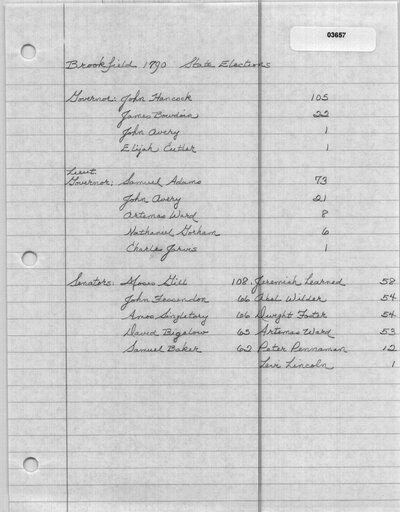 03657
Brookfield 1790 State Elections
Governor: John Hancock 105
James Bowdoin 22
John Avery 1
Elijah Cutler 1
Lieut.
Governor: Samuel Adams 73
John Avery 21
Artemas Ward 8
Nathaniel Gorham 6
Charles Jarvis 1
Senators: Moses Gill 108. Jeremiah Learned 58
John Fessendon 66 Abel Wilder 54
Amos Singletory 66 Dwight Foster 54
David Bigelow 65 Artemas Ward 53
Samuel Baker 62 Peter Pennaman 12
Levi Lincoln 1